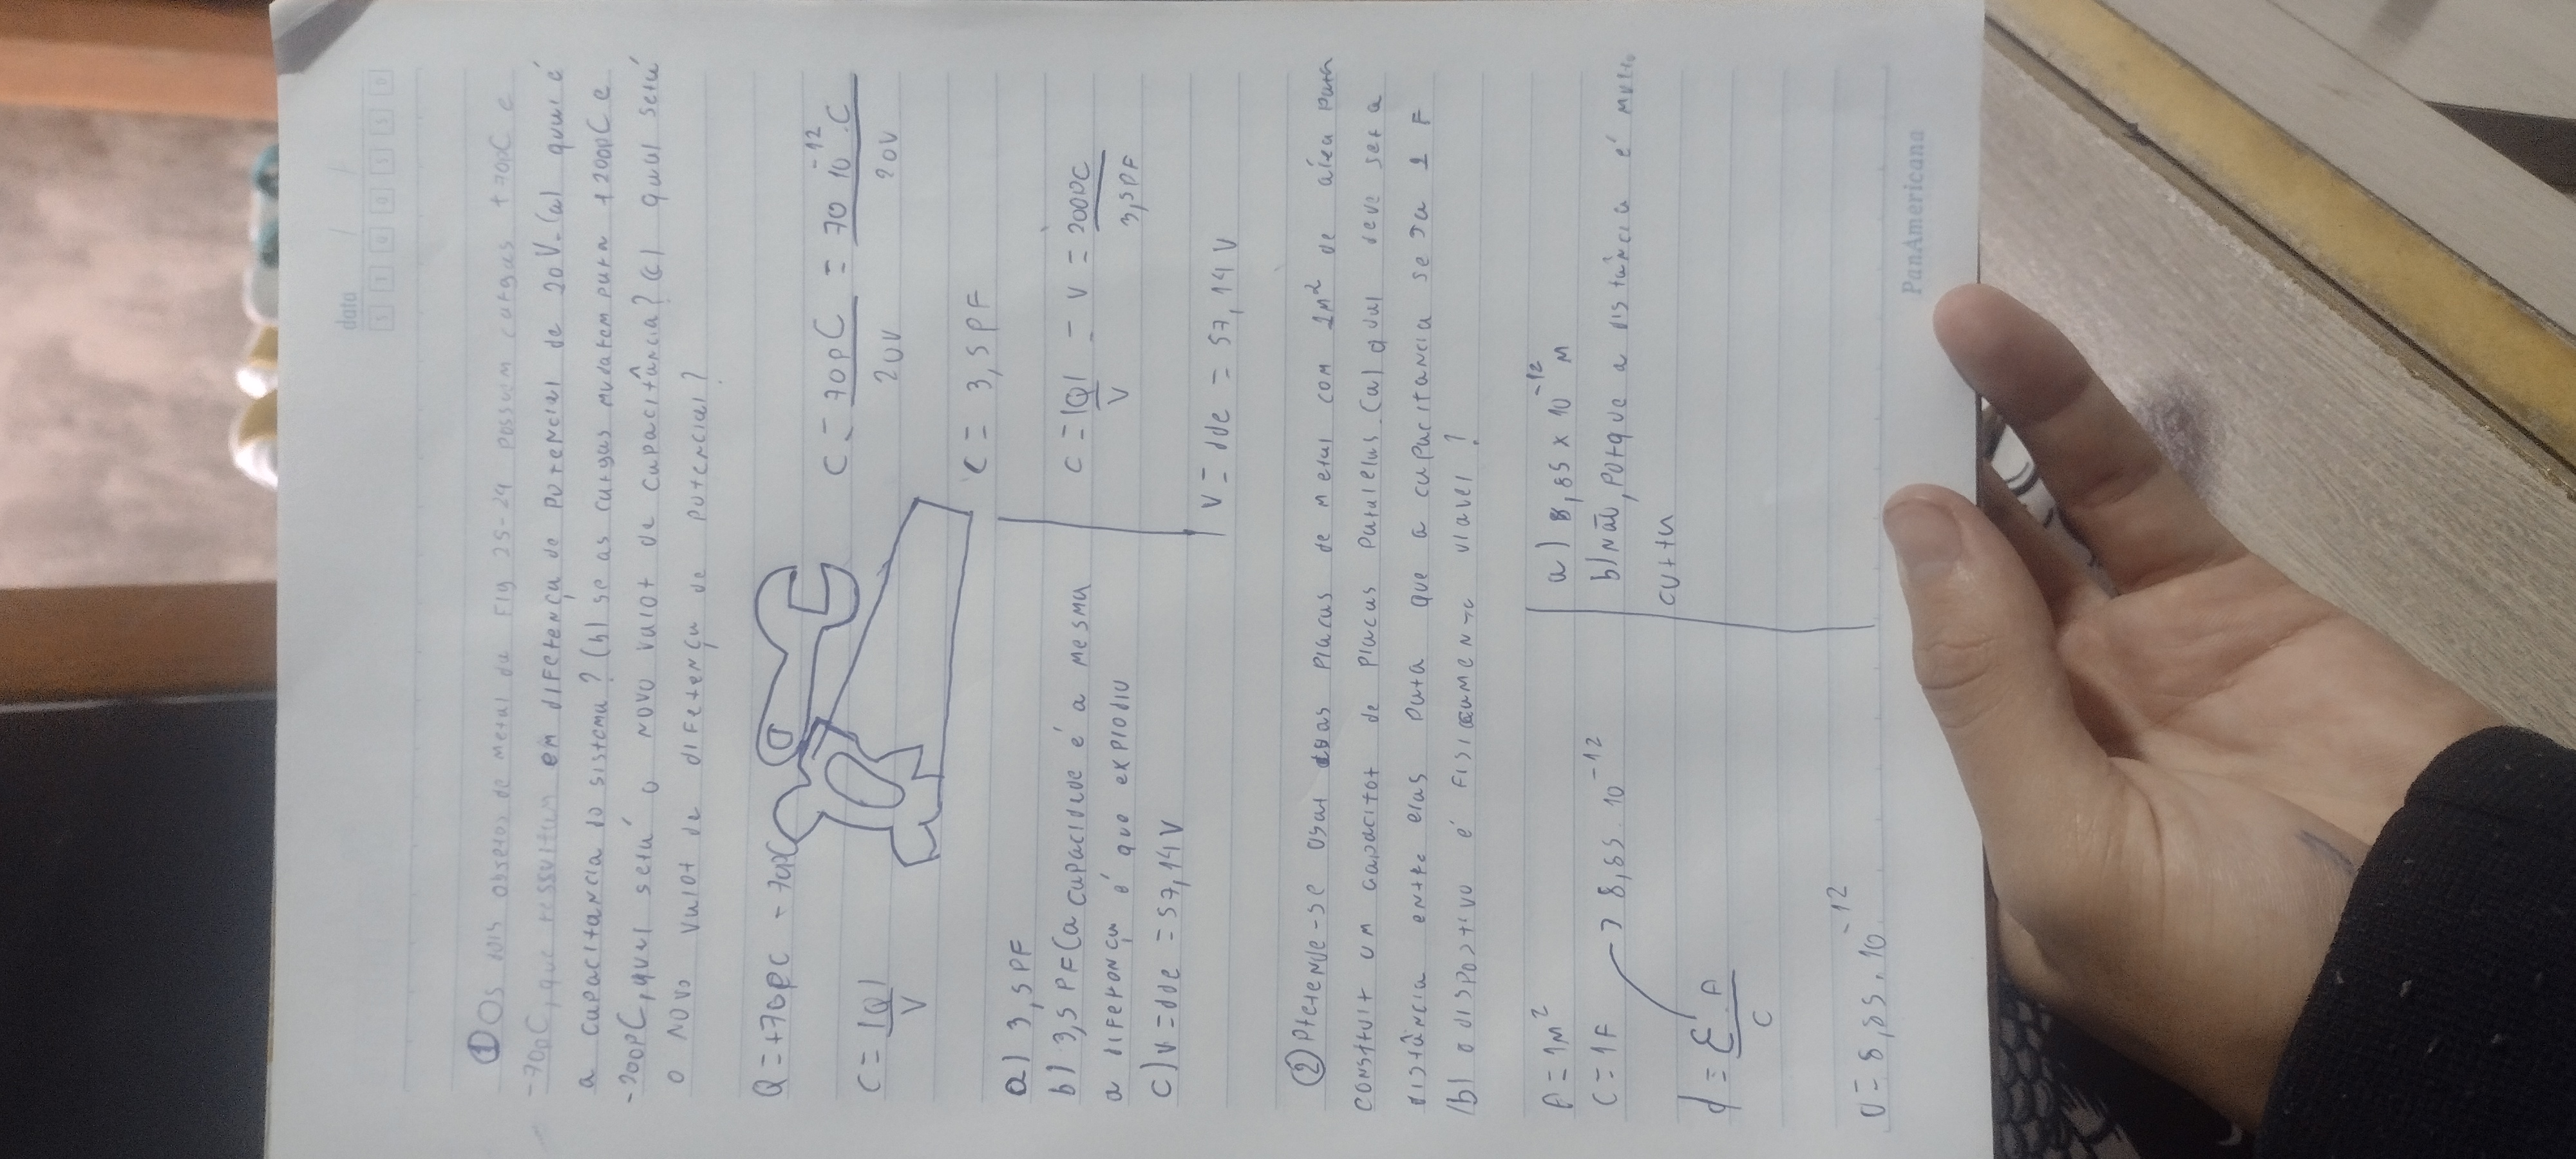 data / /
S T Q Q S S D
① Os dois objetos de metal da Fig 25-24 possuem cargas +70pC e
-70pC, que ressultam em diferença de potencial de 20V. (a) qual é
a capacitancia do sistema? (b) se as cargas mudarem para +200pC e
-200pC, qual será o novo valor de capacitância? (c) qual será
o novo valor de diferença de potencial?
Q = +70pC - 70pC
C = |Q| / V
C = 70pC / 20V = 70 10^-12 . C / 20V
C = 3,5 PF
a) 3,5 PF
b) 3,5 PF (a capacidade é a mesma
a diferença é que explodiu
c) V = dde = 57,14 V
C = |Q| / V = V = 200pC / 3,5PF
V = dde = 57,14 V
② Pretende-se usar duas placas de metal com 1m² de área para
construir um capacitor de placas paralelas. (a) qual deve ser a
distância entre elas para que a capacitancia seja 1 F
(b) o dispositivo é fisicamente viavel?
A = 1m²
C = 1F
→ 8,85 . 10^-12
d = Ɛ . A / C
d = 8,85 . 10^-12
a) 8,85 x 10^-12 m
b) Não, porque a distância é muito
curta
PanAmericana